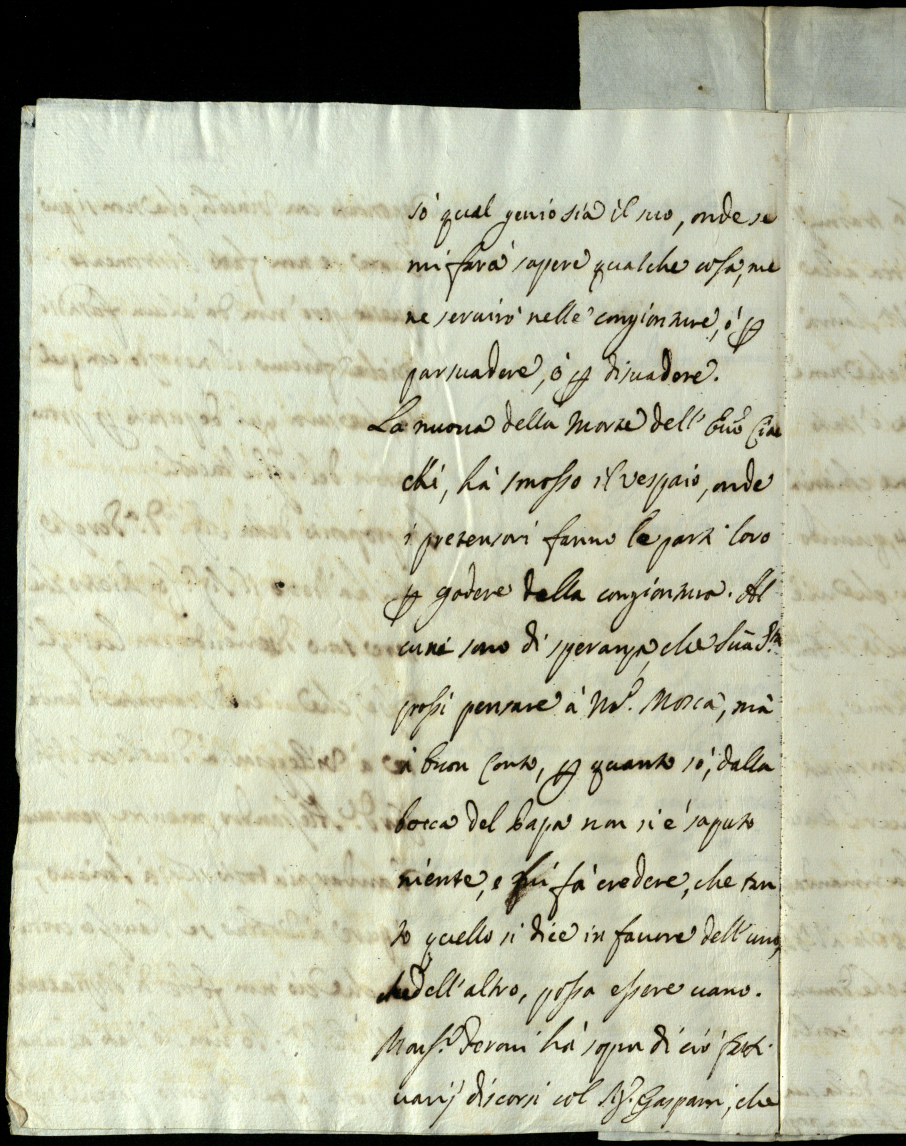 sò qual genio sia il suo, onde se
mi farà sapere qualche cosa, me
ne seruirò nelle congionture, ò p
parsuadere, ò p disuadere.
La nuoua della Morte dell' Em̃o Cia
cchi, hà smosso il vespaio, onde
i pretensori fanno le parti loro
p godere della congiontura. Al
cuni sono di speranza, che Sua S.tà
possi pensare à M.r Mosca, mà
à buon conto, p quanto sò, dalla
bocca del Papa non si è saputo
niente, e mi fà credere, che tan
to quello si dice in fauore dell'uno,
che dell'altro, possa essere uano.
Mons.r hà sopra di ciò fatti
uarij discorsi col Sig.r Gasparri, che